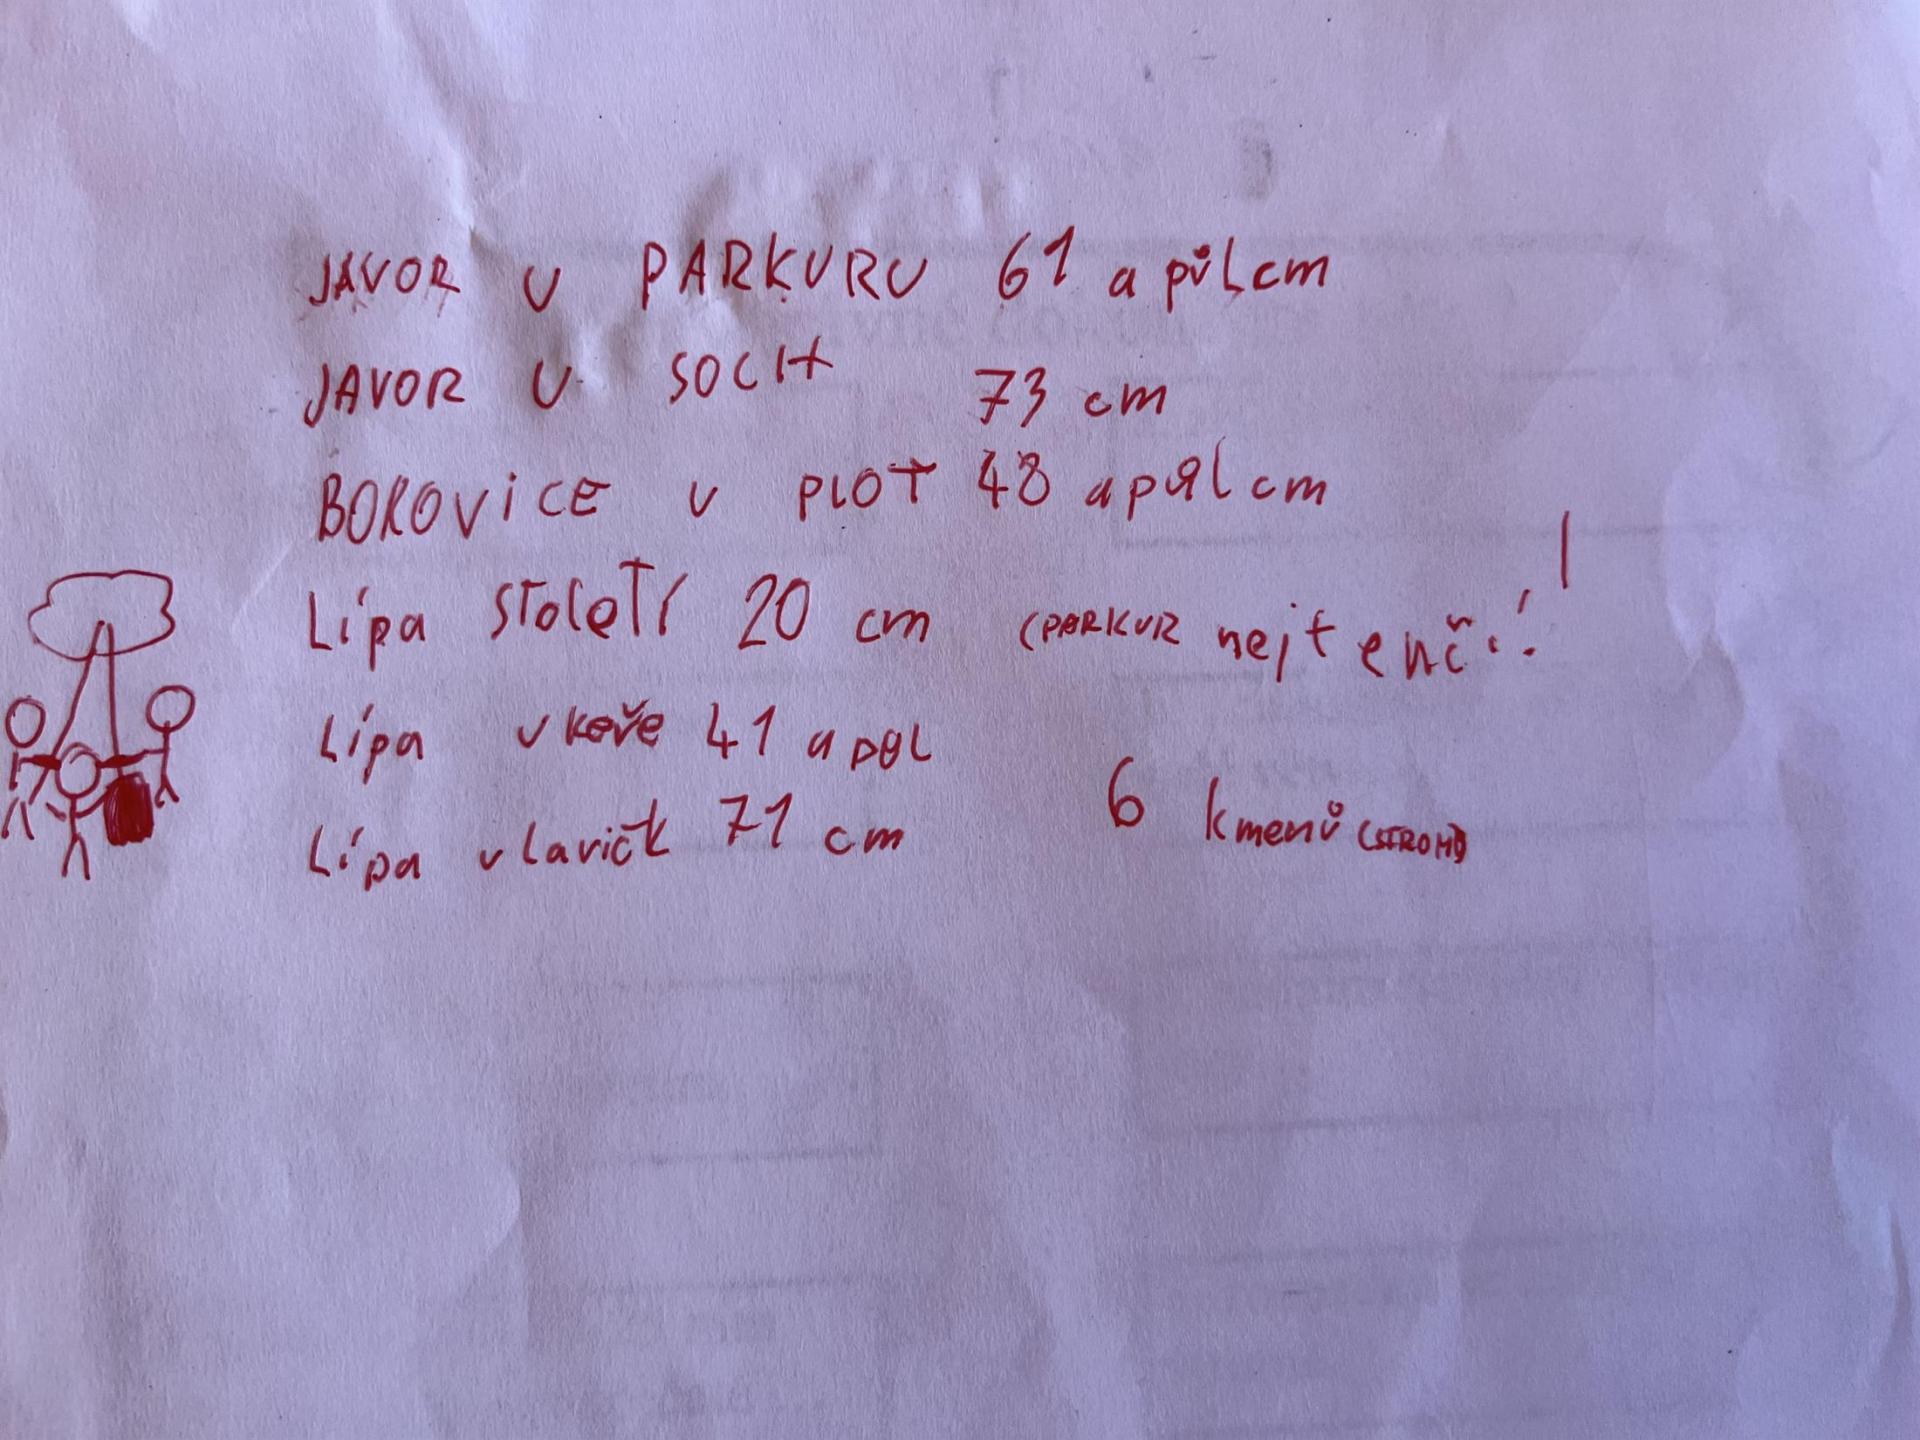 JAVOR U PARKURU 61 a půl cm
JAVOR U SOCH 73 cm
BOROVICE U PLOT 48 a půl cm
Lípa století 20 cm (PARKUR nejtenčí!!
Lípa u keře 41 a půl
Lípa u lavičk 71 cm
6 kmenů (STROMŮ)